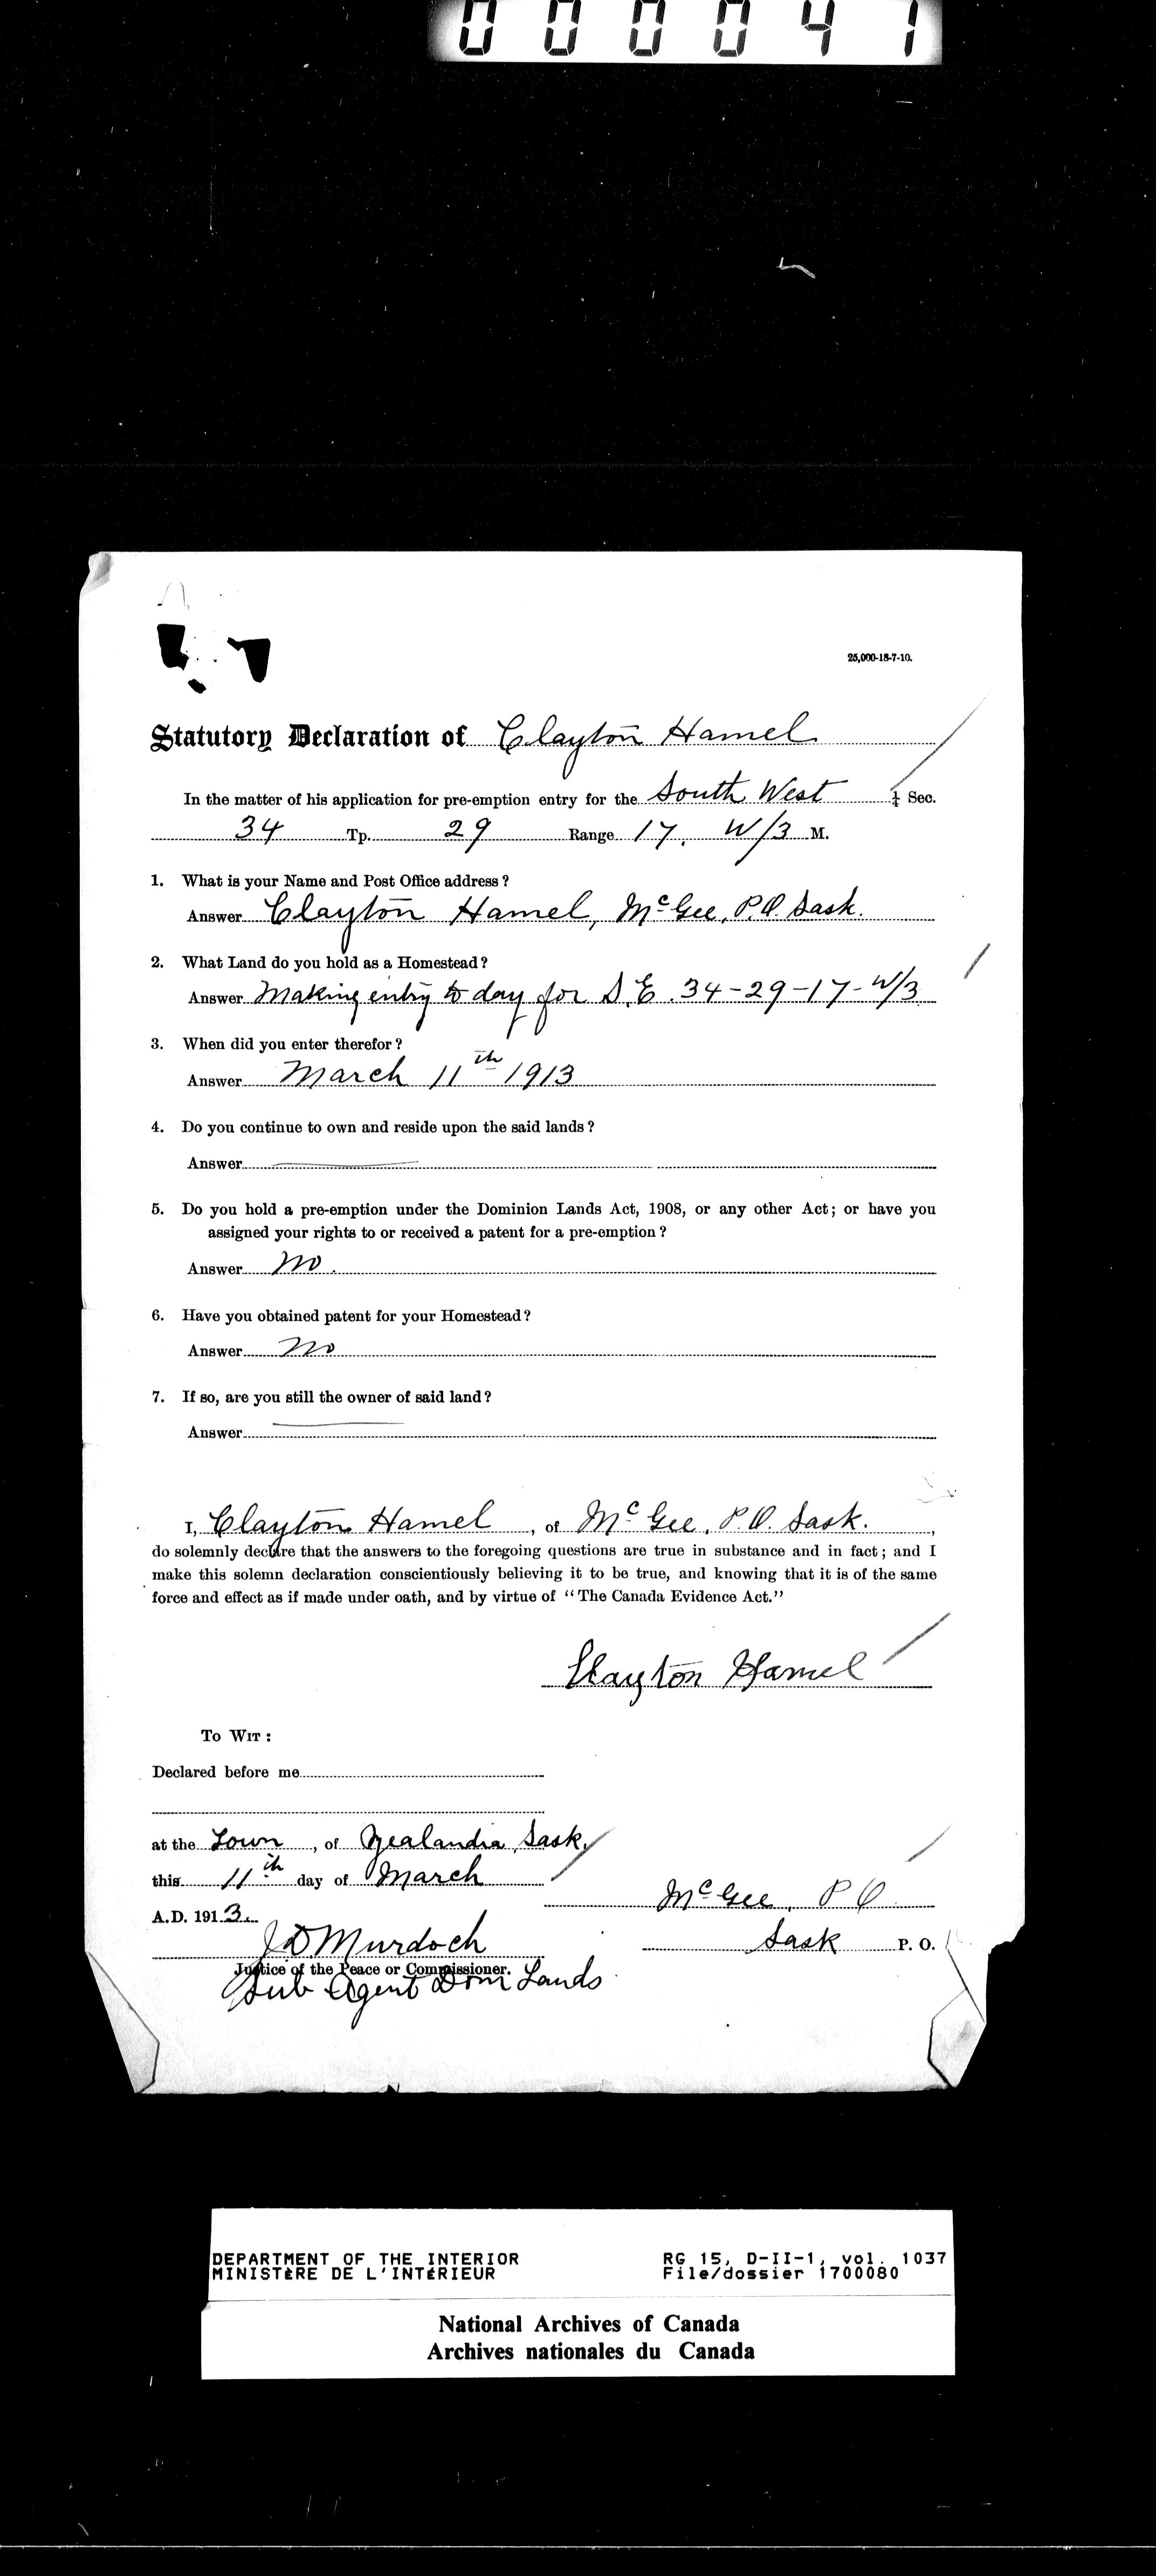 000041
25,000-18-7-10.
Statutory Declaration of Clayton Hamel
In the matter of his application for pre-emption entry for the South West ¼ Sec.
34 Tp. 29 Range 17, W/3 M.
1. What is your Name and Post Office address?
Answer Clayton Hamel, McGee, P.O. Sask.
2. What Land do you hold as a Homestead?
Answer Making entry to day for S.E. 34-29-17-W/3
3. When did you enter therefor?
Answer March 11th 1913
4. Do you continue to own and reside upon the said lands?
Answer
5. Do you hold a pre-emption under the Dominion Lands Act, 1908, or any other Act; or have you
assigned your rights to or received a patent for a pre-emption?
Answer No.
6. Have you obtained patent for your Homestead?
Answer No
7. If so, are you still the owner of said land?
Answer
I, Clayton Hamel, of McGee, P.O. Sask.,
do solemnly declare that the answers to the foregoing questions are true in substance and in fact; and I
make this solemn declaration conscientiously believing it to be true, and knowing that it is of the same
force and effect as if made under oath, and by virtue of "The Canada Evidence Act."
Clayton Hamel
To Wit:
Declared before me
at the Town, of Zealandia, Sask.
this 11th day of March
McGee, P O
A.D. 1913.
Sask P. O.
J D Murdoch
Justice of the Peace or Commissioner.
Sub Agent Dom Lands
DEPARTMENT OF THE INTERIOR RG 15, D-II-1, vol. 1037
MINISTÈRE DE L'INTÉRIEUR File/dossier 1700080
National Archives of Canada
Archives nationales du Canada